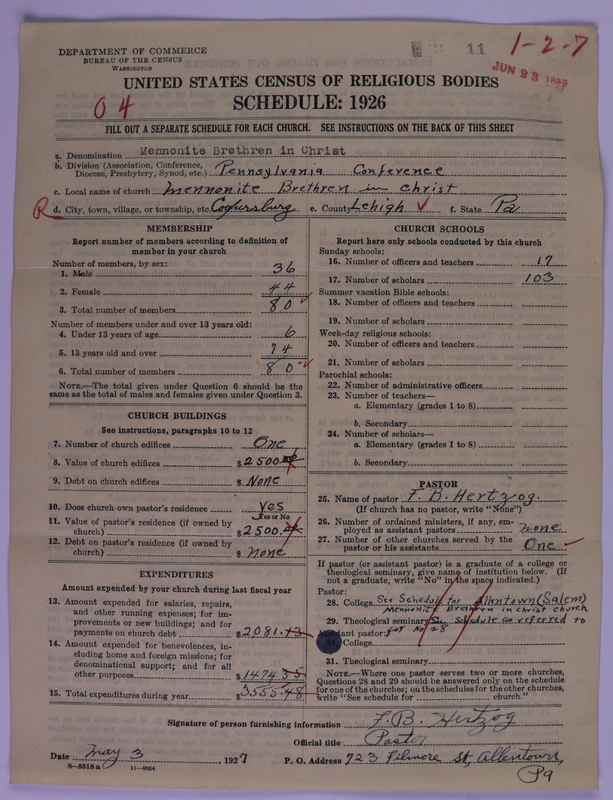 11
1-2-7
JUN 23
DEPARTMENT OF COMMERCE
BUREAU OF THE CENSUS
WASHINGTON
UNITED STATES CENSUS OF RELIGIOUS BODIES
04
SCHEDULE: 1926
FILL OUT A SEPARATE SCHEDULE FOR EACH CHURCH. SEE INSTRUCTIONS ON THE BACK OF THIS SHEET
a. Denomination Mennonite Brethren in Christ
b. Division (Association, Conference, Diocese, Presbytery, Synod, etc.) Pennsylvania Conference
c. Local name of church Mennonite Brethren in Christ
R d. City, town, village, or township, etc. Coopersburg e. County Lehigh f. State Pa
MEMBERSHIP
Report number of members according to definition of
member in your church
Number of members, by sex:
1. Male 36
2. Female 44
3. Total number of members 80
Number of members under and over 13 years old:
4. Under 13 years of age 6
5. 13 years old and over 74
6. Total number of members 80
NOTE.—The total given under Question 6 should be the
same as the total of males and females given under Question 3.
CHURCH BUILDINGS
See instructions, paragraphs 10 to 12
7. Number of church edifices One
8. Value of church edifices $2500.00
9. Debt on church edifices $ None
10. Does church own pastor's residence Yes
Yes or No
11. Value of pastor's residence (if owned by
church) $2500.00
12. Debt on pastor's residence (if owned by
church) $ none
EXPENDITURES
Amount expended by your church during last fiscal year
13. Amount expended for salaries, repairs,
and other running expenses; for im-
provements or new buildings; and for
payments on church debt $2081.13
14. Amount expended for benevolences, in-
cluding home and foreign missions; for
denominational support; and for all
other purposes $1474 35
15. Total expenditures during year $3555.48
CHURCH SCHOOLS
Report here only schools conducted by this church
Sunday schools:
16. Number of officers and teachers 17
17. Number of scholars 103
Summer vacation Bible schools:
18. Number of officers and teachers
19. Number of scholars
Week-day religious schools:
20. Number of officers and teachers
21. Number of scholars
Parochial schools:
22. Number of administrative officers
23. Number of teachers—
a. Elementary (grades 1 to 8)
b. Secondary
24. Number of scholars—
a. Elementary (grades 1 to 8)
b. Secondary
PASTOR
25. Name of pastor F. B. Hertzog.
(If church has no pastor, write "None")
26. Number of ordained ministers, if any, em-
ployed as assistant pastors none
27. Number of other churches served by the
pastor or his assistants One
If pastor (or assistant pastor) is a graduate of a college or
theological seminary, give name of institution below. (If
not a graduate, write "No" in the space indicated.)
Pastor:
28. College See Schedule for Allentown (Salem)
Mennonite Brethren in christ church
29. Theological seminary See Schedule so referred to
Assistant pastor: for No 28
30. College
31. Theological seminary
NOTE.—Where one pastor serves two or more churches,
Questions 28 and 29 should be answered only on the schedule
for one of the churches; on the schedules for the other churches,
write "See schedule for ______ church."
Signature of person furnishing information F. B. Hertzog
Official title Pastor
Date May 3, 1927 P. O. Address 723 Filmore St, Allentown,
Pa
8-5518a 11-9054